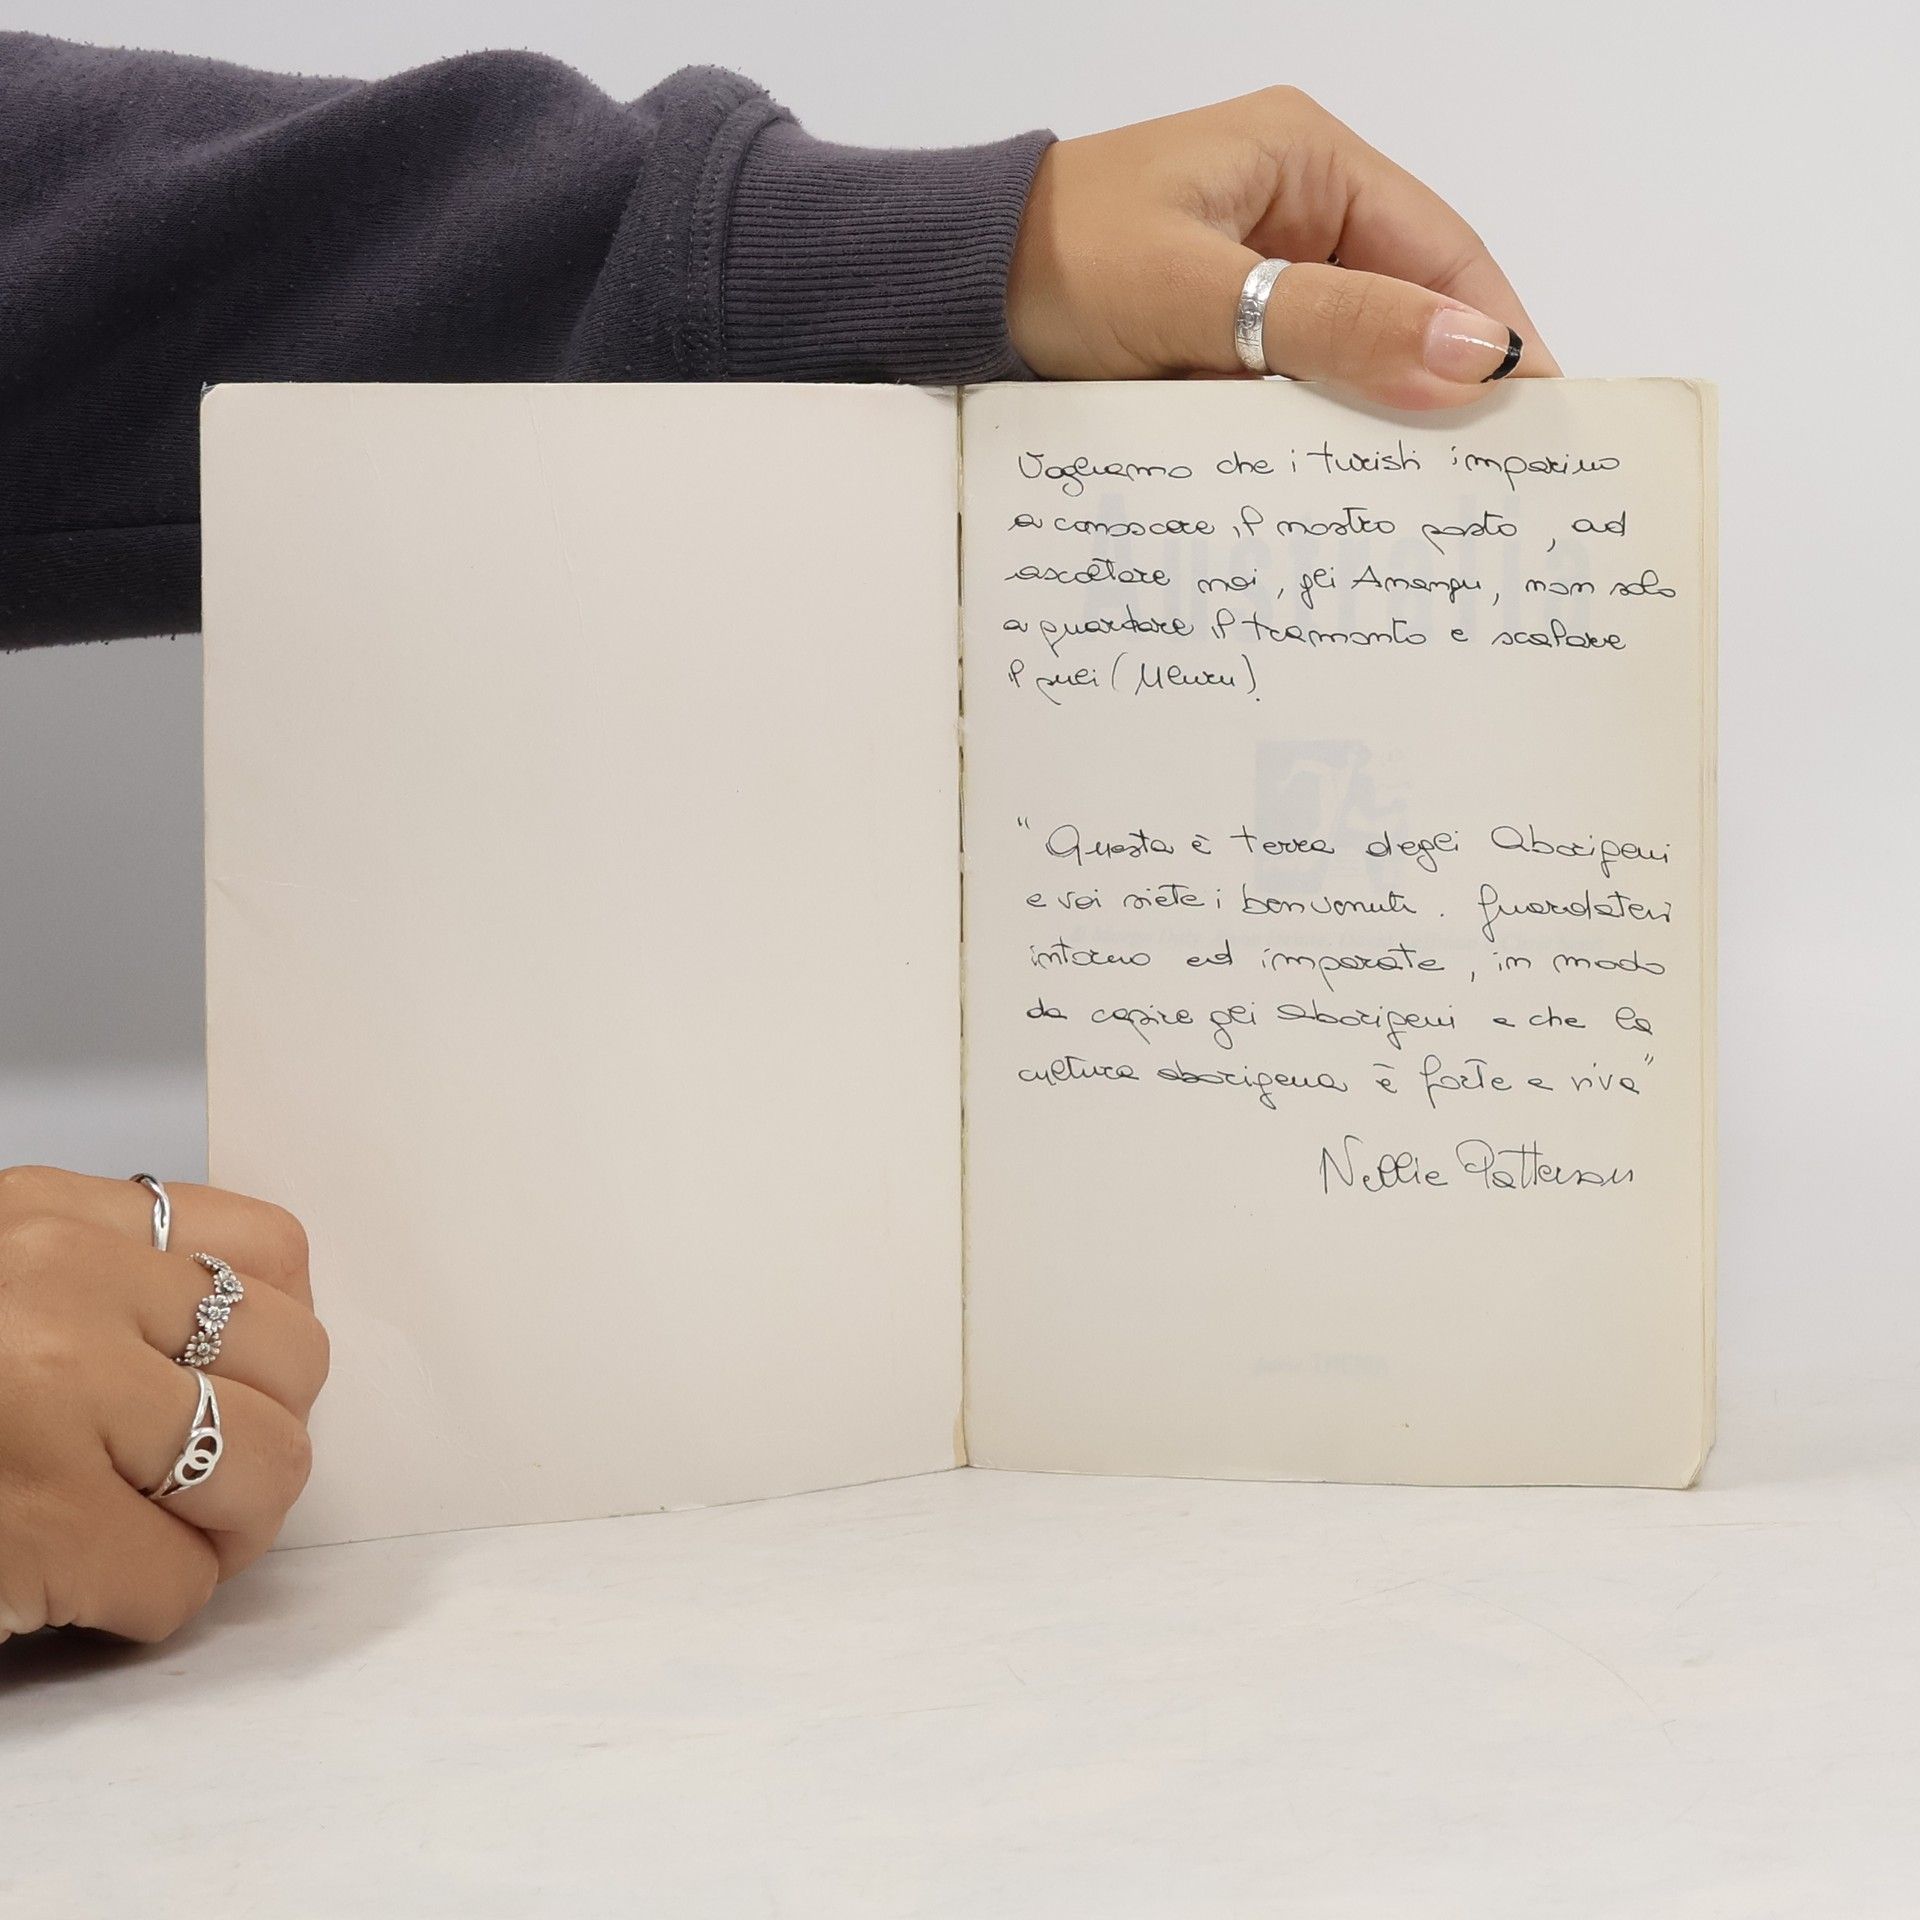 Vogliamo che i turisti imparino
a conoscere il nostro posto, ad
ascoltare noi, gli Anangu, non solo
a guardare il tramonto e scalare
il puli (Uluru).
"Questa è terra degli Aborigeni
e voi siete i benvenuti. Guardatevi
intorno ed imparate, in modo
da capire gli aborigeni e che la
cultura aborigena è forte e viva"
Nellie Patterson